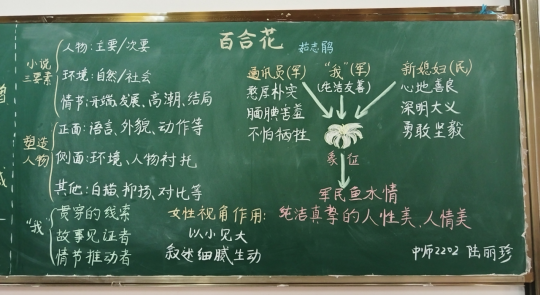 百合花 茹志鹃
小说三要素
人物:主要/次要
环境:自然/社会
情节:开端、发展、高潮、结局
塑造人物
正面:语言、外貌、动作等
侧面:环境、人物衬托
其他:白描、抑扬、对比等
"我"
贯穿的线索
故事见证者
情节推动者
通讯员(军)
憨厚朴实
腼腆害羞
不怕牺牲
"我"(军)
(纯洁友善)
新媳妇(民)
心地善良
深明大义
勇敢坚毅
象征
军民鱼水情
女性视角作用:纯洁真挚的人性美、人情美
以小见大
叙述细腻生动
中师2202 陆丽珍